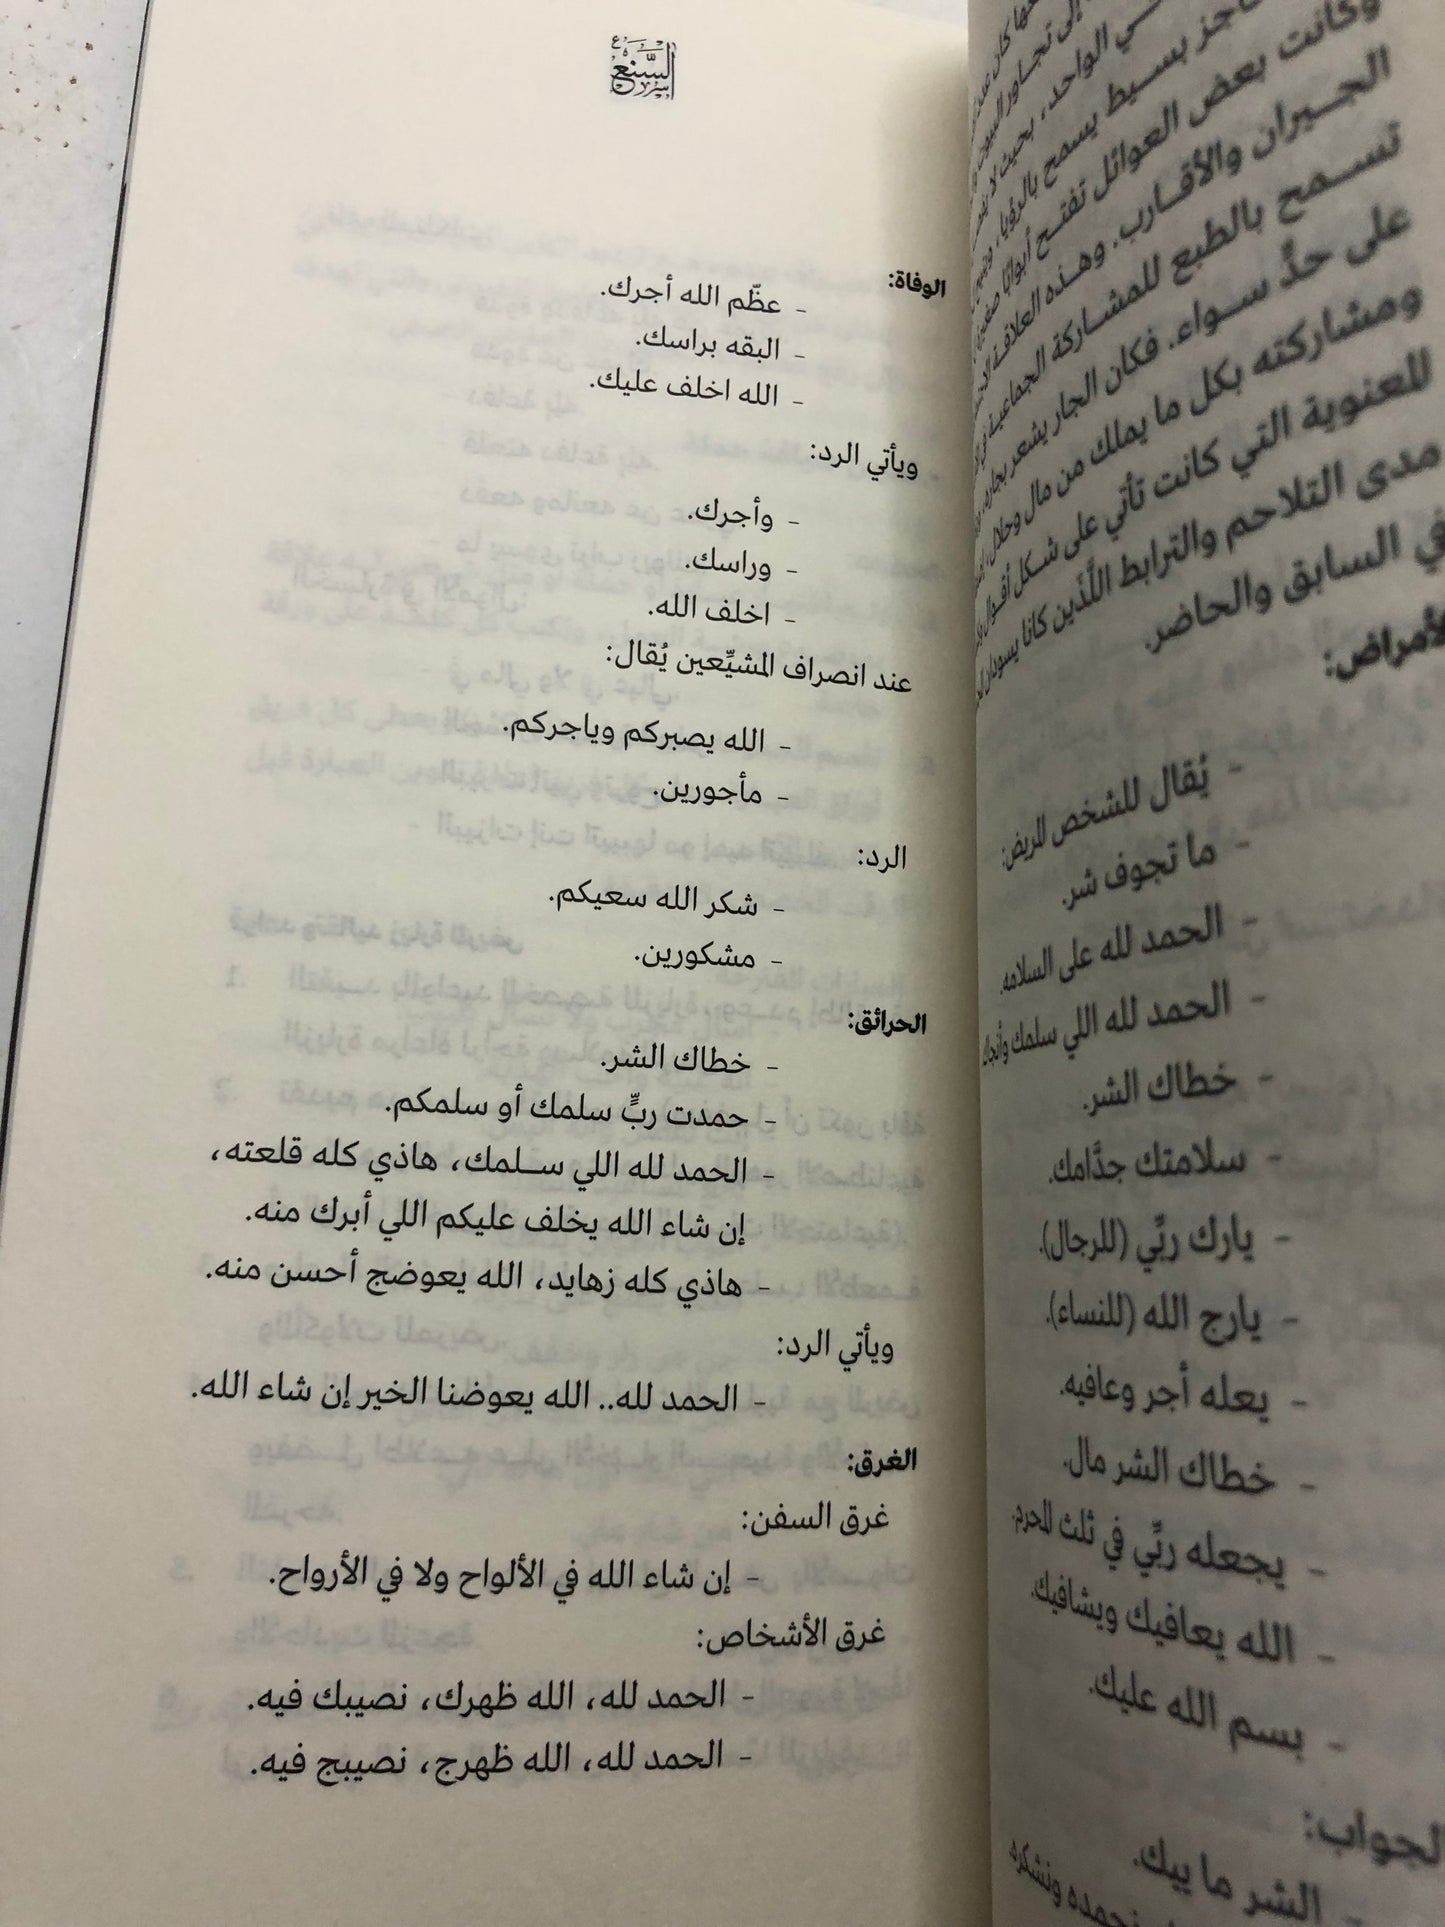 وكانت بعض العوائل تفتح أبوابًا
الجيران والأقارب. وهذه العلاقة
تسمح بالطبع للمشاركة الجماعية في
على حدٍّ سواء. فكان الجار يشعر بجاره،
ومشاركته بكل ما يملك من مال وحلال،
المعنوية التي كانت تأتي على شكل أقوال
مدى التلاحم والترابط اللَّذَين كانا يسودان
في السابق والحاضر.
الأمراض:
- يُقال للشخص المريض:
- ما تجوف شر.
- الحمد لله على السلامه.
- الحمد لله اللي سلمك وأنجاك
- خطاك الشر.
- سلامتك جدَّامك.
- يارك ربِّي (للرجال).
- يارج الله (للنساء).
- يعله أجر وعافيه.
- خطاك الشر مال.
- يجعله ربِّي في ثلث المحرم.
- الله يعافيك ويشافيك.
- بسم الله عليك.
الجواب:
- الشر ما ييك.
نحمده ونشكره
السنع
الوفاة:
- عظّم الله أجرك.
- البقه براسك.
- الله اخلف عليك.
ويأتي الرد:
- وأجرك.
- وراسك.
- اخلف الله.
عند انصراف المشيِّعين يُقال:
- الله يصبركم وياجركم.
- مأجورين.
الرد:
- شكر الله سعيكم.
- مشكورين.
الحرائق:
- خطاك الشر.
- حمدت ربٍّ سلمك أو سلمكم.
- الحمد لله اللي سلمك، هاذي كله قلعته،
إن شاء الله يخلف عليكم اللي أبرك منه.
- هاذي كله زهايد، الله يعوضج أحسن منه.
ويأتي الرد:
- الحمد لله.. الله يعوضنا الخير إن شاء الله.
الغرق:
غرق السفن:
- إن شاء الله في الألواح ولا في الأرواح.
غرق الأشخاص:
- الحمد لله، الله ظهرك، نصيبك فيه.
- الحمد لله، الله ظهرج، نصيبج فيه.